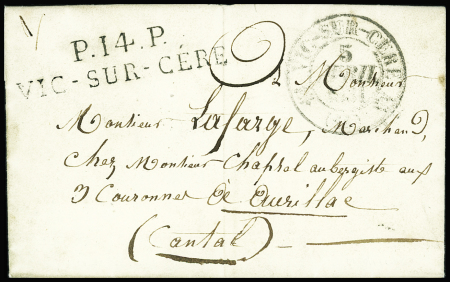 P.14.P.
VIC-SUR-CÈRE
VIC-SUR-CÈRE
5
2
A Monsieur
Monsieur Lafarge, Marchand,
Chez Monsieur Chapsel aubergiste aux
3 Couronnes de Aurillac
(Cantal)